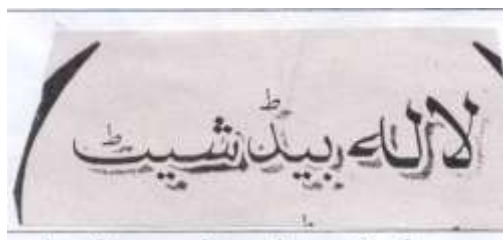 لالہ بیڈ شیٹ